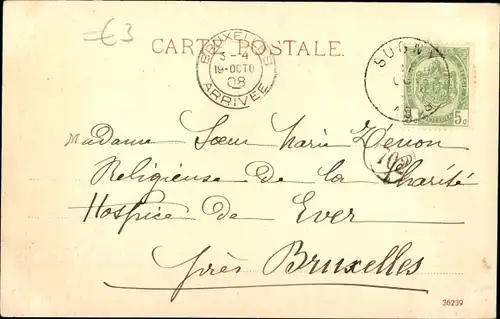 €3
CARTE POSTALE.
BRUXELLES
3-4
19-OCTO
08
ARRIVEE
SUGN
5c
Madame Sœur Marie
Religieuse de la Charité
Hospice de Ever
près Bruxelles
36239